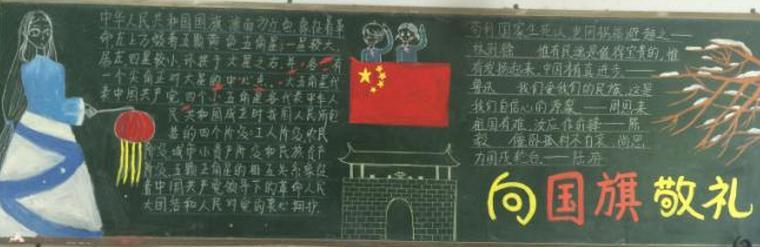 中华人民共和国国旗旗面为红色,象征着革
命左上方缀着五颗黄色五角星,一星较大
居左四星较小,环拱于大星之右,并各有
一个尖角正对大星的中心点。大五角星代
表中国共产党,四个小五角星各代表中华人
民共和国成立时我国人民所包
括的四个阶级:工人阶级农民
阶级城市小资产阶级和民族资产
阶级五颗五角星的相互关系象征
着中国共产党领导下的革命人民
大团结和人民对党的衷心拥护
苟利国家生死以,岂因祸福避趋之——
林则徐 惟有民魂是值得宝贵的,惟
有发扬起来,中国才有真进步——
鲁迅 我们爱我们的民族,这是
我们自信心的源泉——周恩来
祖国有难,汝应作前锋——陈
毅 僵卧孤村不自哀,尚思
为国戍轮台——陆游
向国旗敬礼